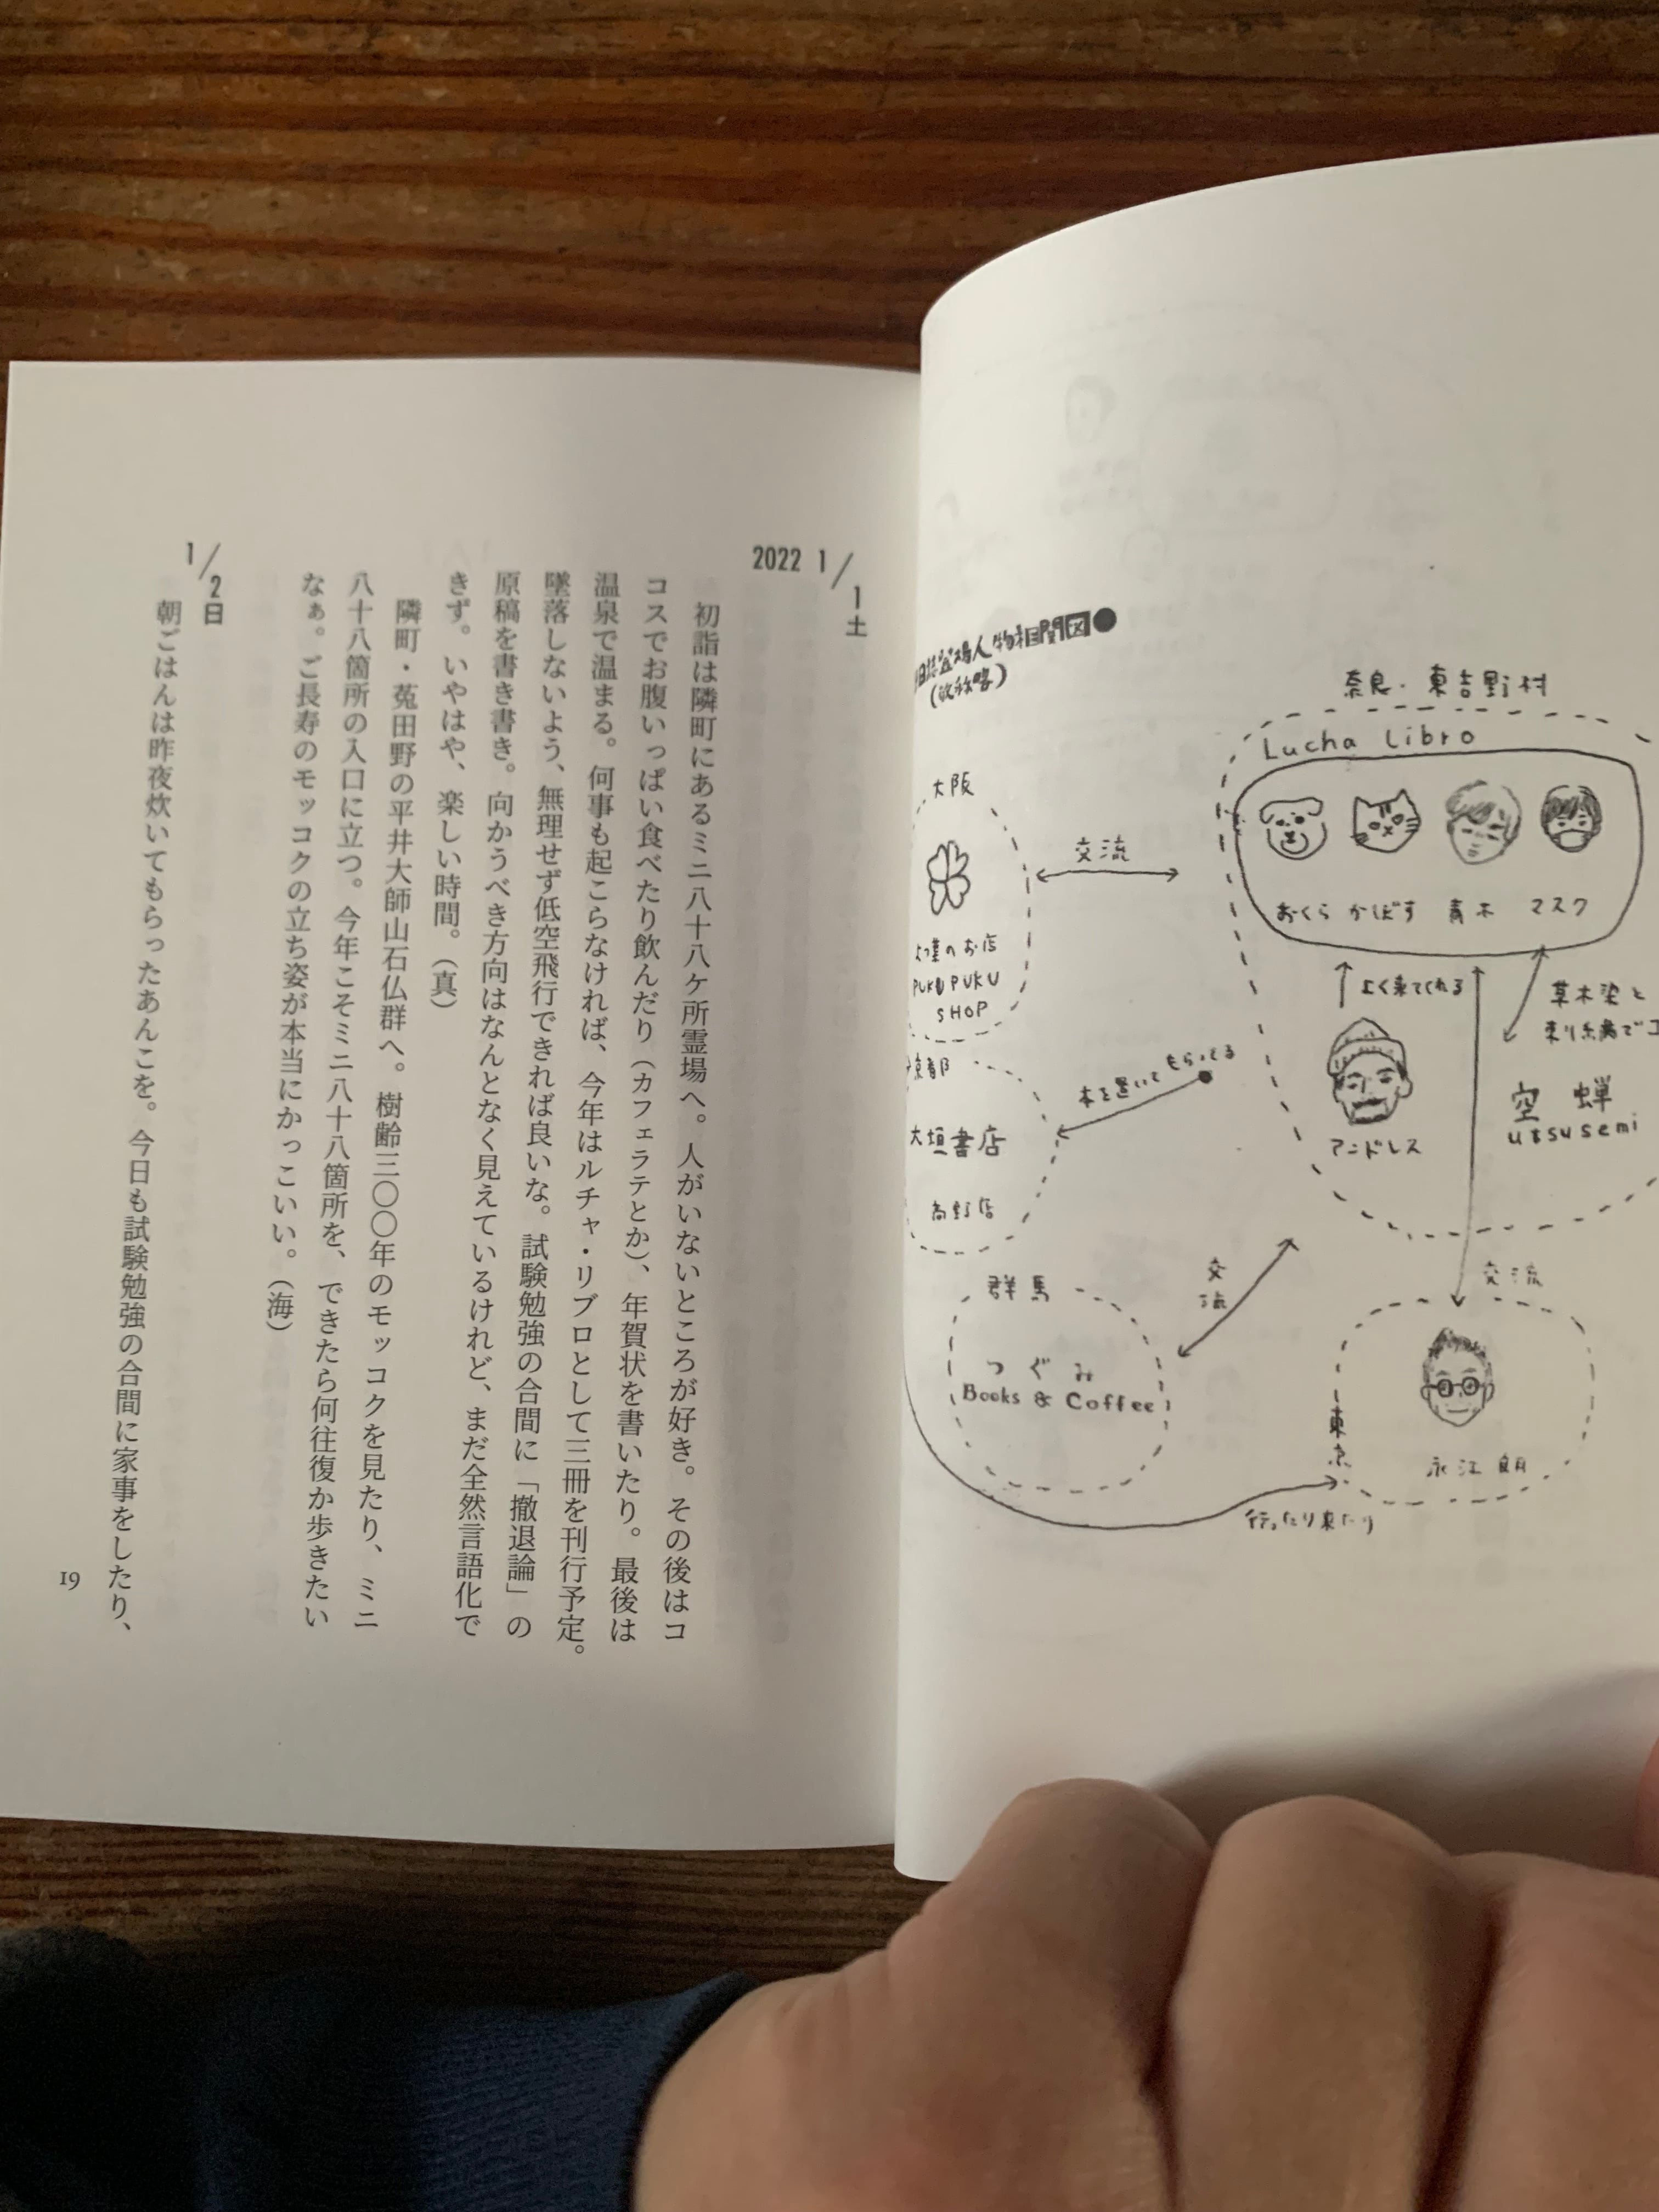 日誌登場人物相関図●
(敬称略)
奈良・東吉野村
Lucha Libro
おくら かぼす 青木 マスク
大阪
交流
PUKUPUKU
SHOP
よく来てくれる
草木染と
空蝉
utsusemi
アンドレス
京都
本を置いてもらってる
大垣書店
高野店
交流
群馬
つぐみ
Books & Coffee
交流
東京
永江朗
行ったり来たり
2022 1/1土
初詣は隣町にあるミニ八十八ケ所霊場へ。人がいないところが好き。その後はコ
コスでお腹いっぱい食べたり飲んだり（カフェラテとか）、年賀状を書いたり。最後は
温泉で温まる。何事も起こらなければ、今年はルチャ・リブロとして三冊を刊行予定。
墜落しないよう、無理せず低空飛行できれば良いな。試験勉強の合間に「撤退論」の
原稿を書き書き。向かうべき方向はなんとなく見えているけれど、まだ全然言語化で
きず。いやはや、楽しい時間。（真）
隣町・菟田野の平井大師山石仏群へ。樹齢三〇〇年のモッコクを見たり、ミニ
八十八箇所の入口に立つ。今年こそミニ八十八箇所を、できたら何往復か歩きたい
なぁ。ご長寿のモッコクの立ち姿が本当にかっこいい。（海）
1/2日
朝ごはんは昨夜炊いてもらったあんこを。今日も試験勉強の合間に家事をしたり、
19